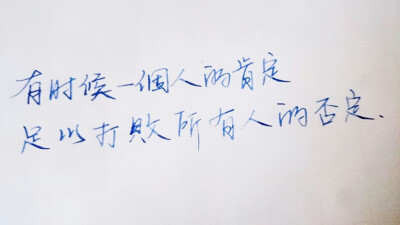 有时候一個人的肯定
足以打败所有人的否定.